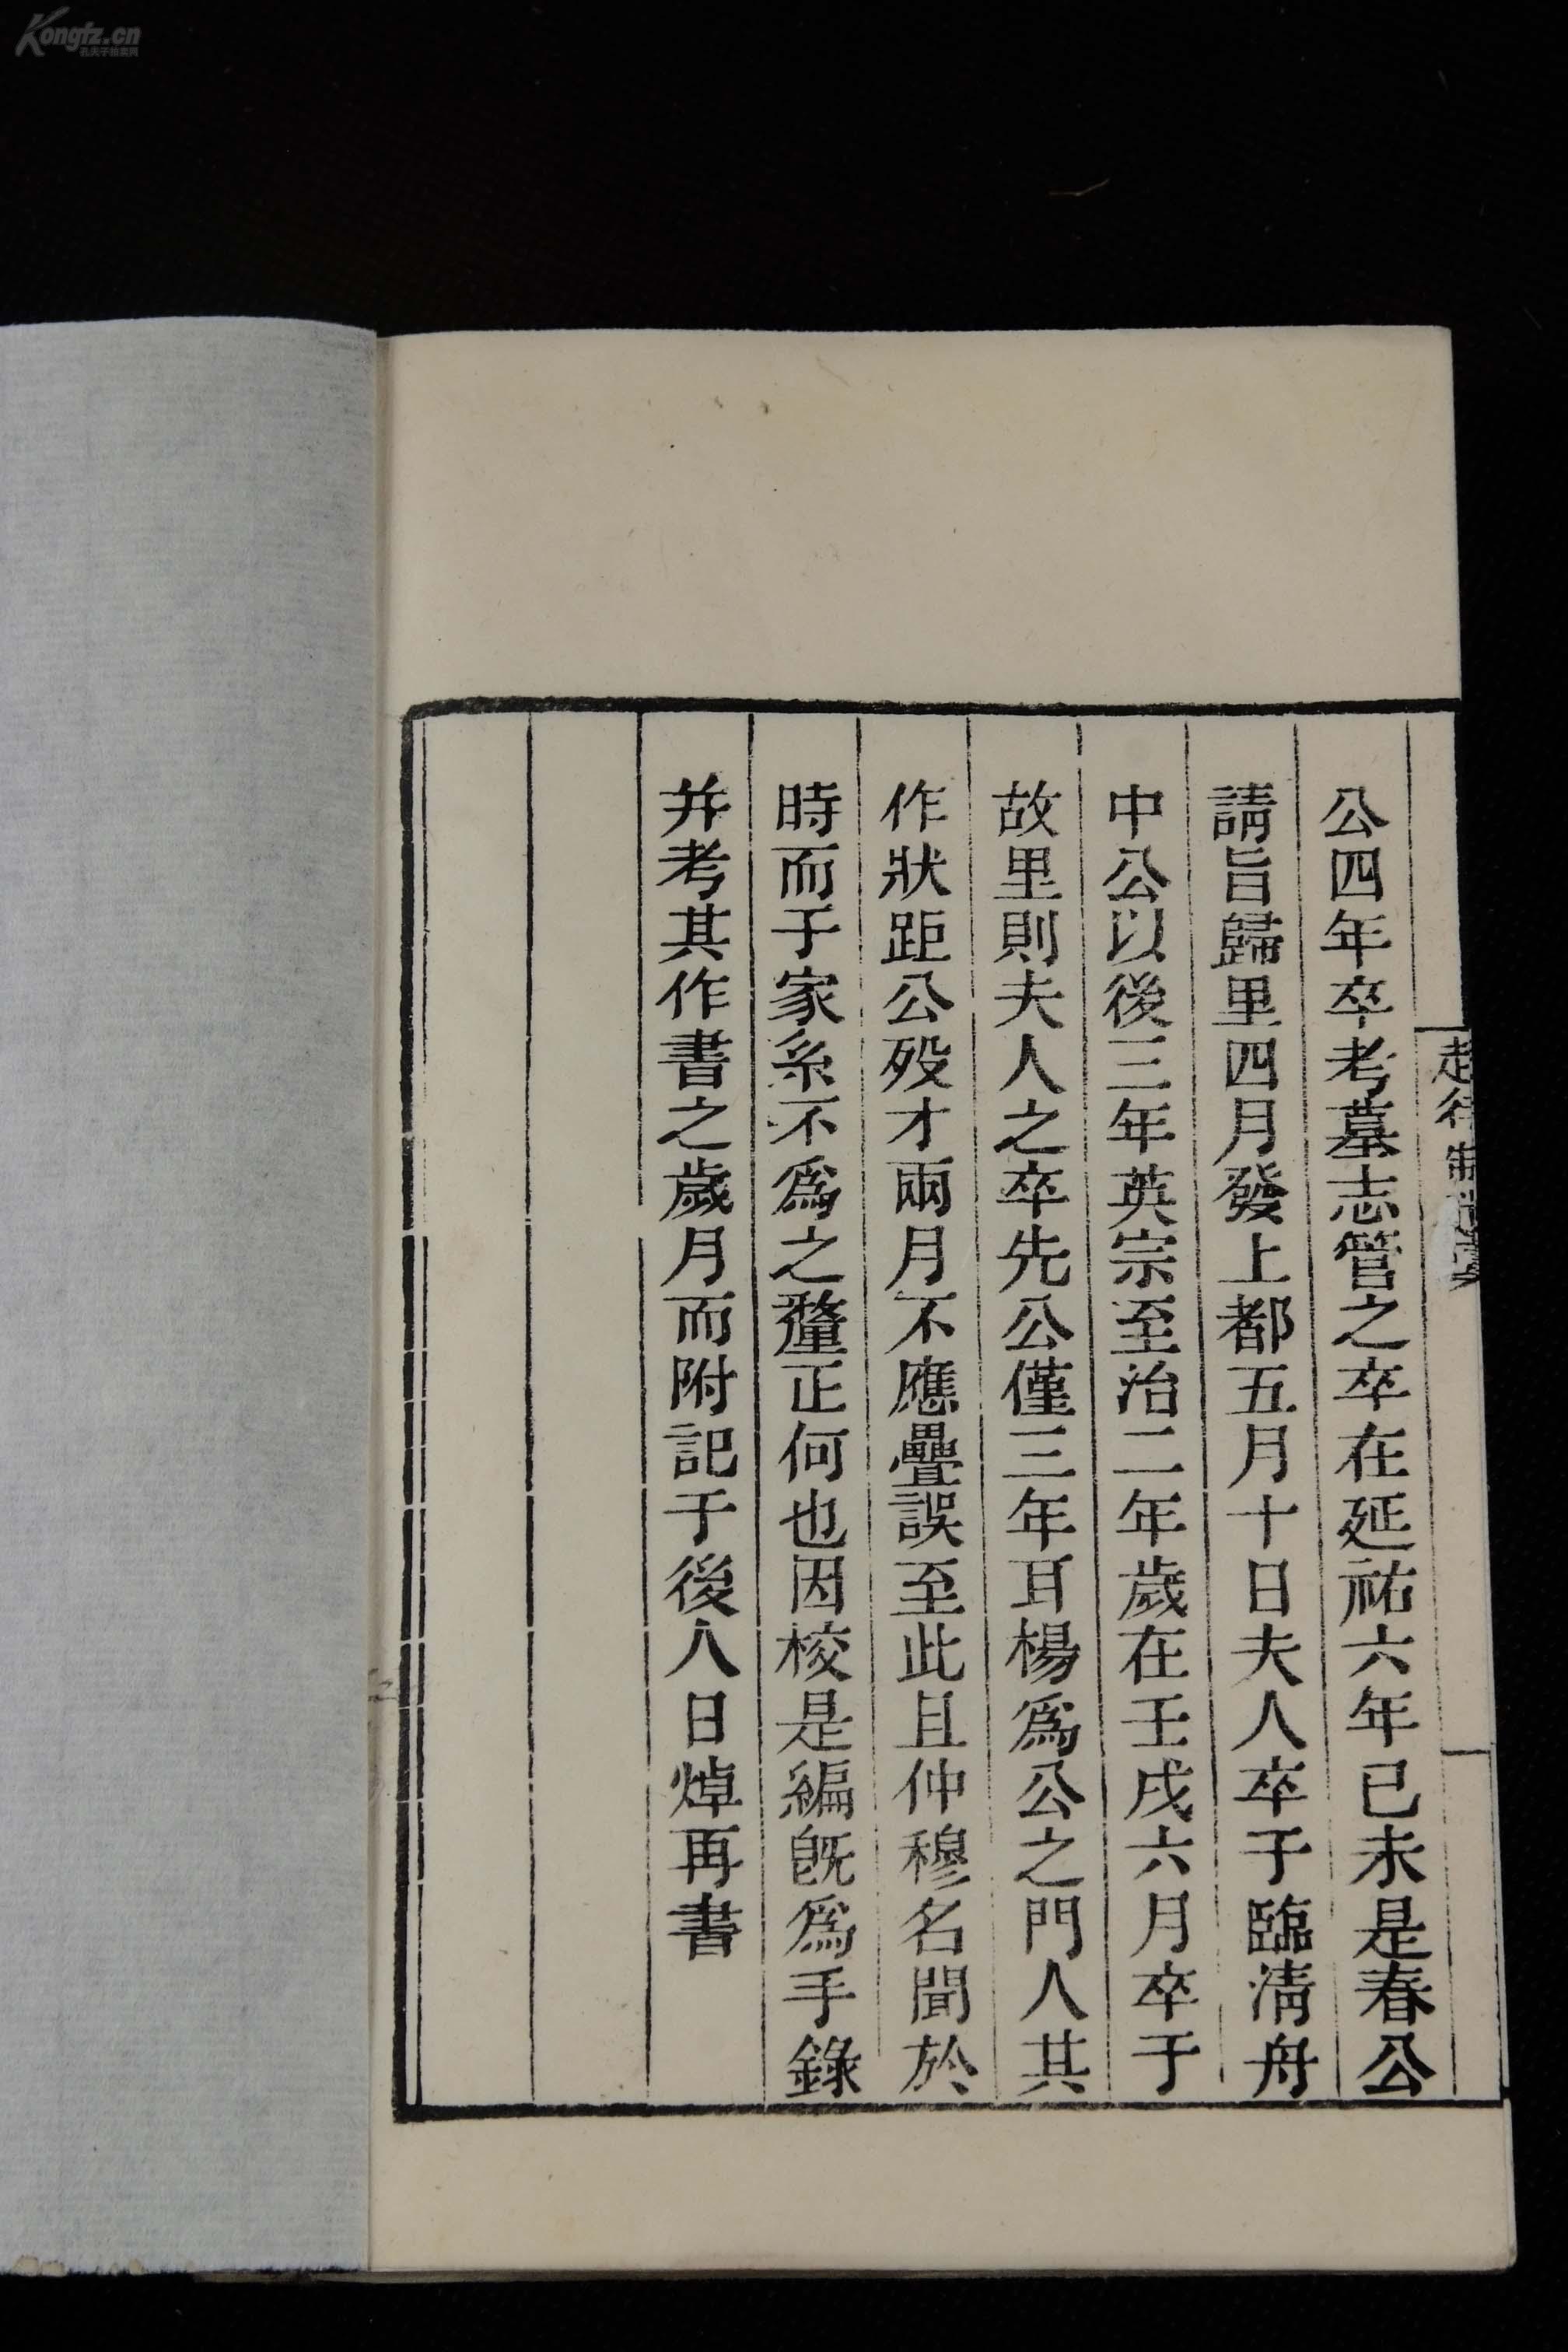 公四年卒考墓志管之卒在延祐六年已未是春公
請旨歸里四月發上都五月十日夫人卒于臨清舟
中公以後三年英宗至治二年歲在壬戌六月卒于
故里則夫人之卒先公僅三年耳楊爲公之門人其
作狀距公歿才兩月不應疊誤至此且仲穆名聞於
時而于家系不爲之釐正何也因校是編旣爲手錄
并考其作書之歲月而附記于後八日焯再書
Kongfz.cn
孔夫子拍卖网